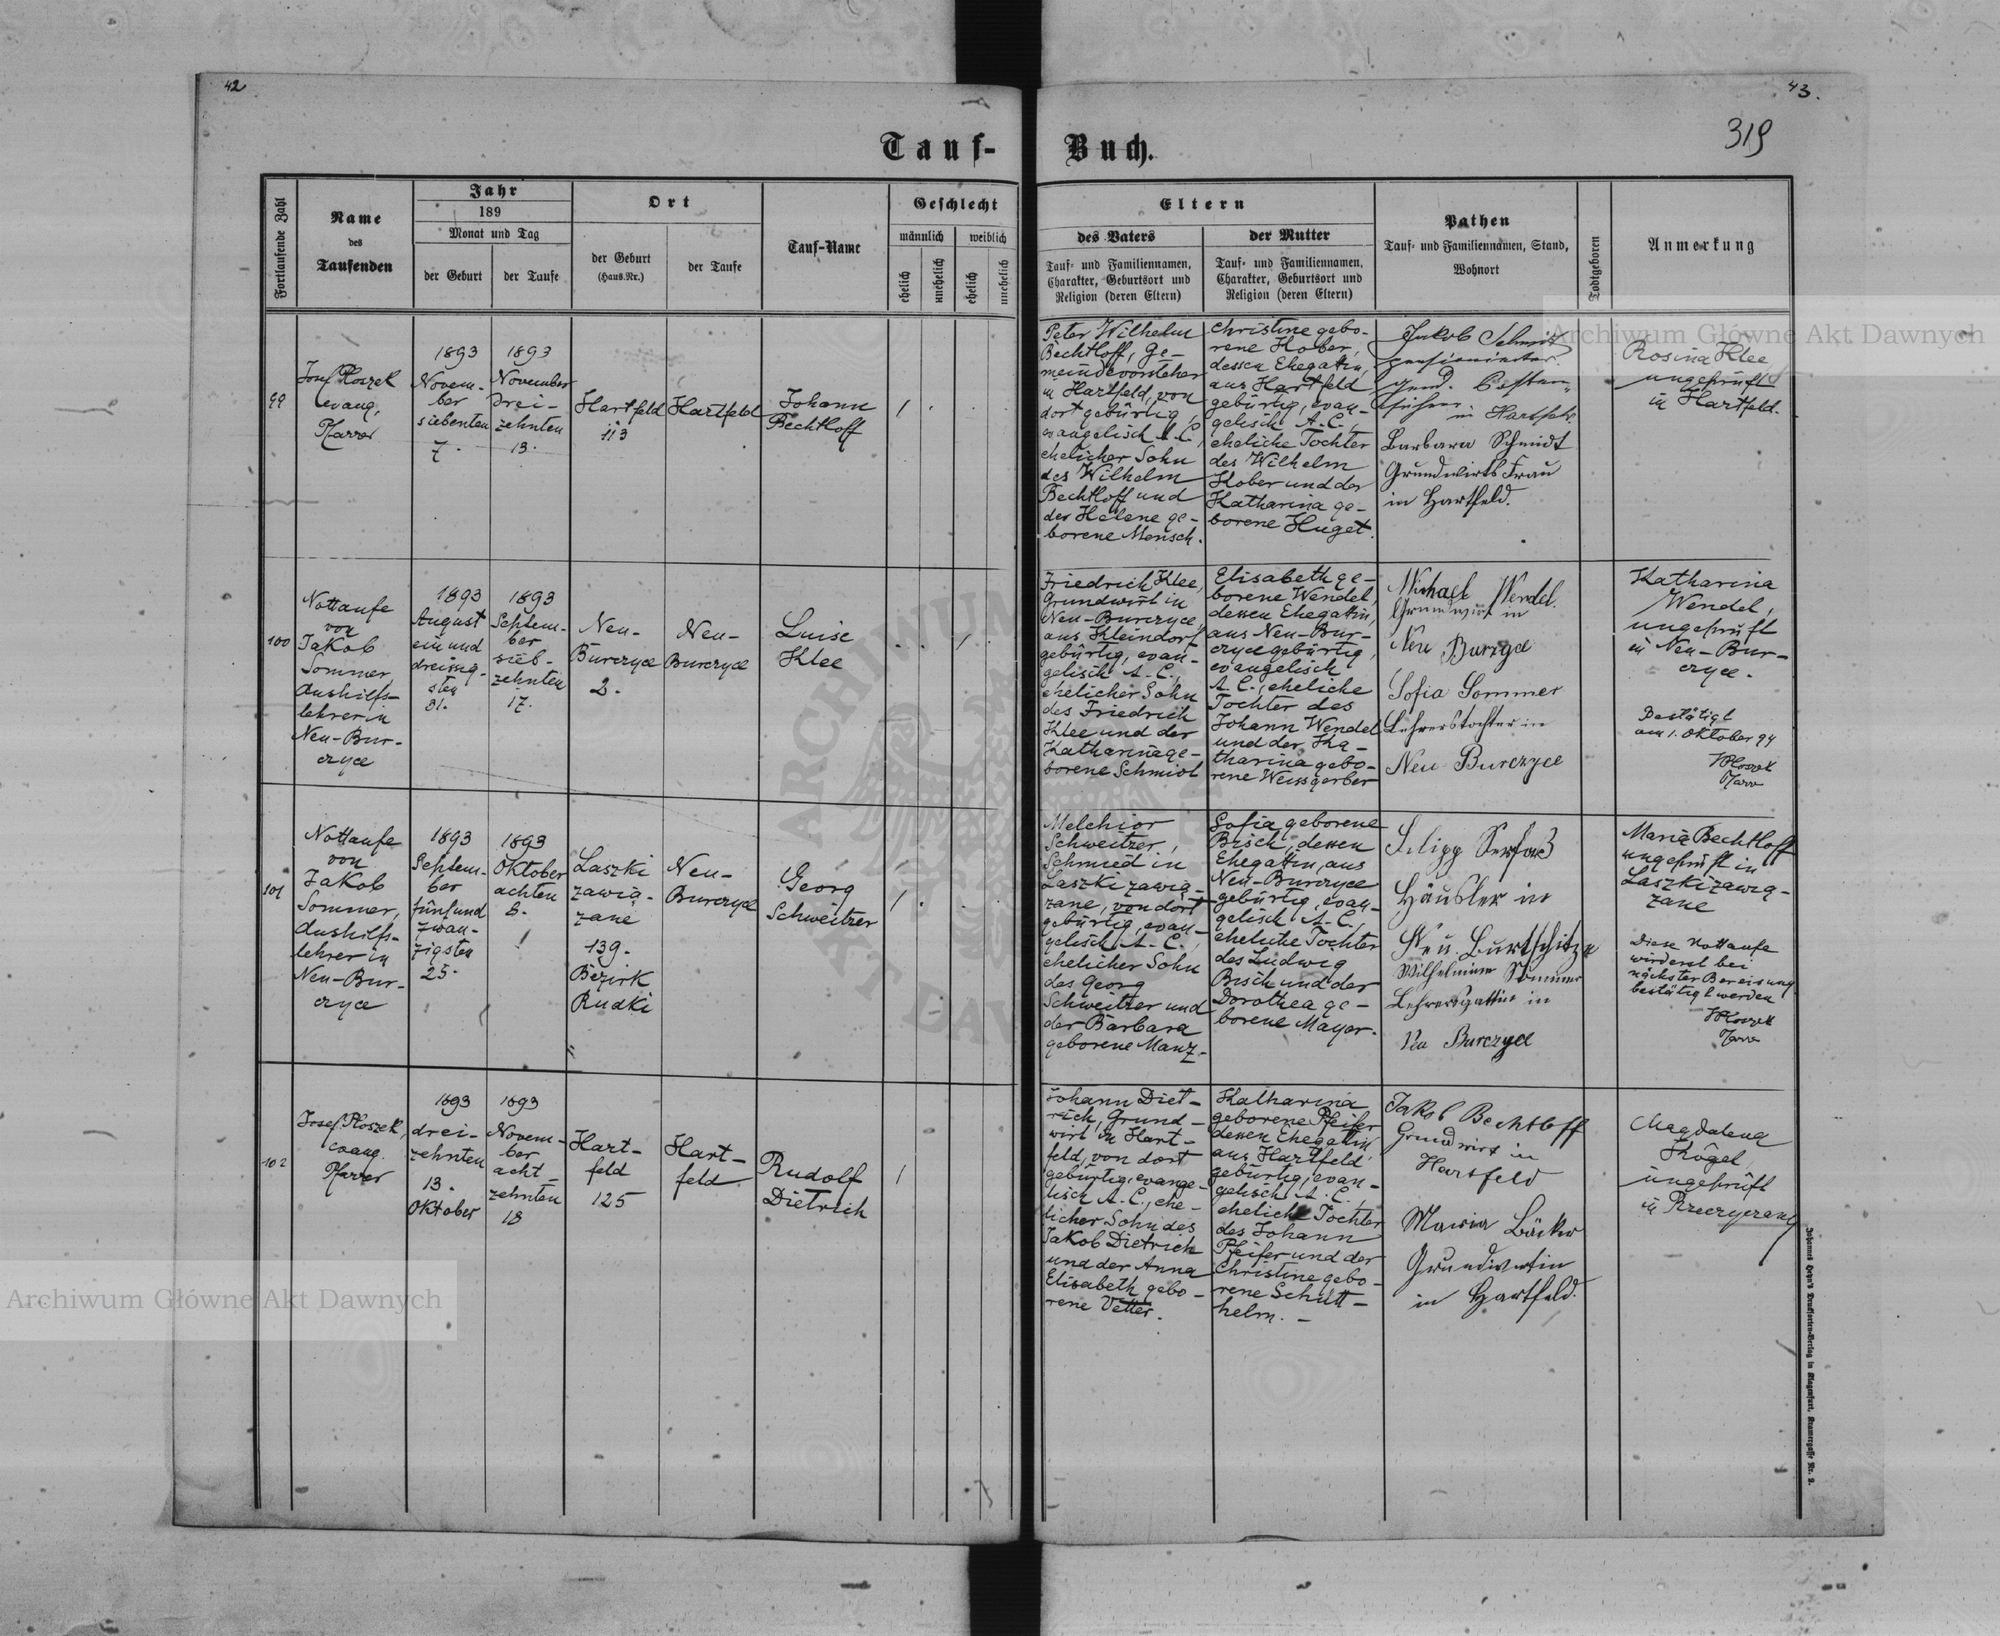 42
43.
319
Tauf-Buch.
Fortlaufende Zahl
Name
des
Taufenden
Jahr
189
Monat und Tag
der Geburt
der Taufe
Ort
der Geburt
(Haus.Nr.)
der Taufe
Tauf-Name
Geschlecht
männlich
weiblich
ehelich
unehelich
ehelich
unehelich
Eltern
des Vaters
Tauf- und Familiennamen,
Charakter, Geburtsort und
Religion (deren Eltern)
der Mutter
Tauf- und Familiennamen,
Charakter, Geburtsort und
Religion (deren Eltern)
Pathen
Tauf- und Familiennamen, Stand,
Wohnort
Todtgeboren
Anmerkung
99
Josef Ploszek
evang.
Pfarrer
1893
Novem-
ber
siebenten
7.
1893
November
drei-
zehnten
13.
Hartfeld
113
Hartfeld
Johann
Bechtloff
Peter Wilhelm
Bechtloff, Ge-
meindevorsteher
in Hartfeld, von
dort gebürtig,
evangelisch A.C.,
ehelicher Sohn
des Wilhelm
Bechtloff und
der Helene ge-
borene Mensch.
Christine gebo-
rene Hober,
dessen Ehegattin,
aus Hartfeld
gebürtig, evan-
gelisch A.C.,
eheliche Tochter
des Wilhelm
Hober und der
Katharina ge-
borene Huget.
Jakob Schmidt
pensionirter
in Hartfeld.
Barbara Schmidt
Grundwirts Frau
in Hartfeld.
Rosina Klee
ungeprüft
in Hartfeld.
100
Nottaufe
von
Jakob
Sommer,
Aushilfs-
lehrer in
Neu-Bur-
czyce
1893
August
ein und
dreissig-
sten
31.
1893
Septem-
ber
sieb-
zehnten
17.
Neu-
Burczyce
2.
Neu-
Burczyce
Luise
Klee
Friedrich Klee,
Grundwirt in
Neu-Burczyce,
aus Kleindorf
gebürtig, evan-
gelisch A.C.,
ehelicher Sohn
des Friedrich
Klee und der
Katharina ge-
borene Schmidt
Elisabeth ge-
borene Wendel,
dessen Ehegattin,
aus Neu-Bur-
czyce gebürtig,
evangelisch
A.C., eheliche
Tochter des
Johann Wendel
und der Ka-
tharina gebo-
rene Weissgerber
Michael Wendel.
Grundwirt in
Neu Burczyce
Sofia Sommer
Lehrerstochter in
Neu-Burczyce
Katharina
Wendel,
ungeprüft
in Neu-Bur-
czyce.
Bestätigt
am 1. Oktober 94
JPloszek
Pfarrer
101
Nottaufe
von
Jakob
Sommer,
Aushilfs-
lehrer in
Neu-Bur-
czyce
1893
Septem-
ber
fünf und
zwan-
zigsten
25.
1893
Oktober
achten
8.
Laszki
zawią-
zane
139.
Bezirk
Rudki
Neu-
Burczyce
Georg
Schweitzer
Melchior
Schweitzer,
Schmied in
Laszki zawią-
zane, von dort
gebürtig, evan-
gelisch A.C.,
ehelicher Sohn
des Georg
Schweitzer und
der Barbara
geborene Manz.
Sofia geborene
Bisch, dessen
Ehegattin, aus
Neu-Burczyce
gebürtig, evan-
gelisch A.C.,
eheliche Tochter
des Ludwig
Bisch und der
Dorothea ge-
borene Mayer.
Filipp Serfaß
Häusler in
Neu Burtschitze
Wilhelmine Sommer
Lehrersgattin in
Neu Burczyce
Maria Bechtloff
ungeprüft in
Laszki zawią-
zane
Diese Nottaufe
wird erst bei
nächster Bereisung
bestätigt werden
JPloszek
Pfarrer
102
Josef Ploszek,
evang.
Pfarrer
1893
drei-
zehnten
13.
Oktober
1893
Novem-
ber
acht-
zehnten
18
Hart-
feld
125
Hart-
feld
Rudolf
Dietrich
Johann Diet-
rich, Grund-
wirt in Hart-
feld, von dort
gebürtig, evange-
lisch A.C., ehe-
licher Sohn des
Jakob Dietrich
und der Anna
Elisabeth gebo-
rene Vetter.
Katharina
geborene Pfeifer,
dessen Ehegattin,
aus Hartfeld
gebürtig, evan-
gelisch A.C.,
eheliche Tochter
des Johann
Pfeifer und der
Christine gebo-
rene Schütt-
helm.
Jakob Bechtloff
Grundwirt in
Hartfeld
Maria Bäcker
Grundwirtin
in Hartfeld.
Magdalena
Kögel,
ungeprüft
in Rzeczyczany
Johannes Heyn's Drucksorten-Verlag in Klagenfurt, Kramergasse Nr. 2.
Archiwum Główne Akt Dawnych
Archiwum Główne Akt Dawnych